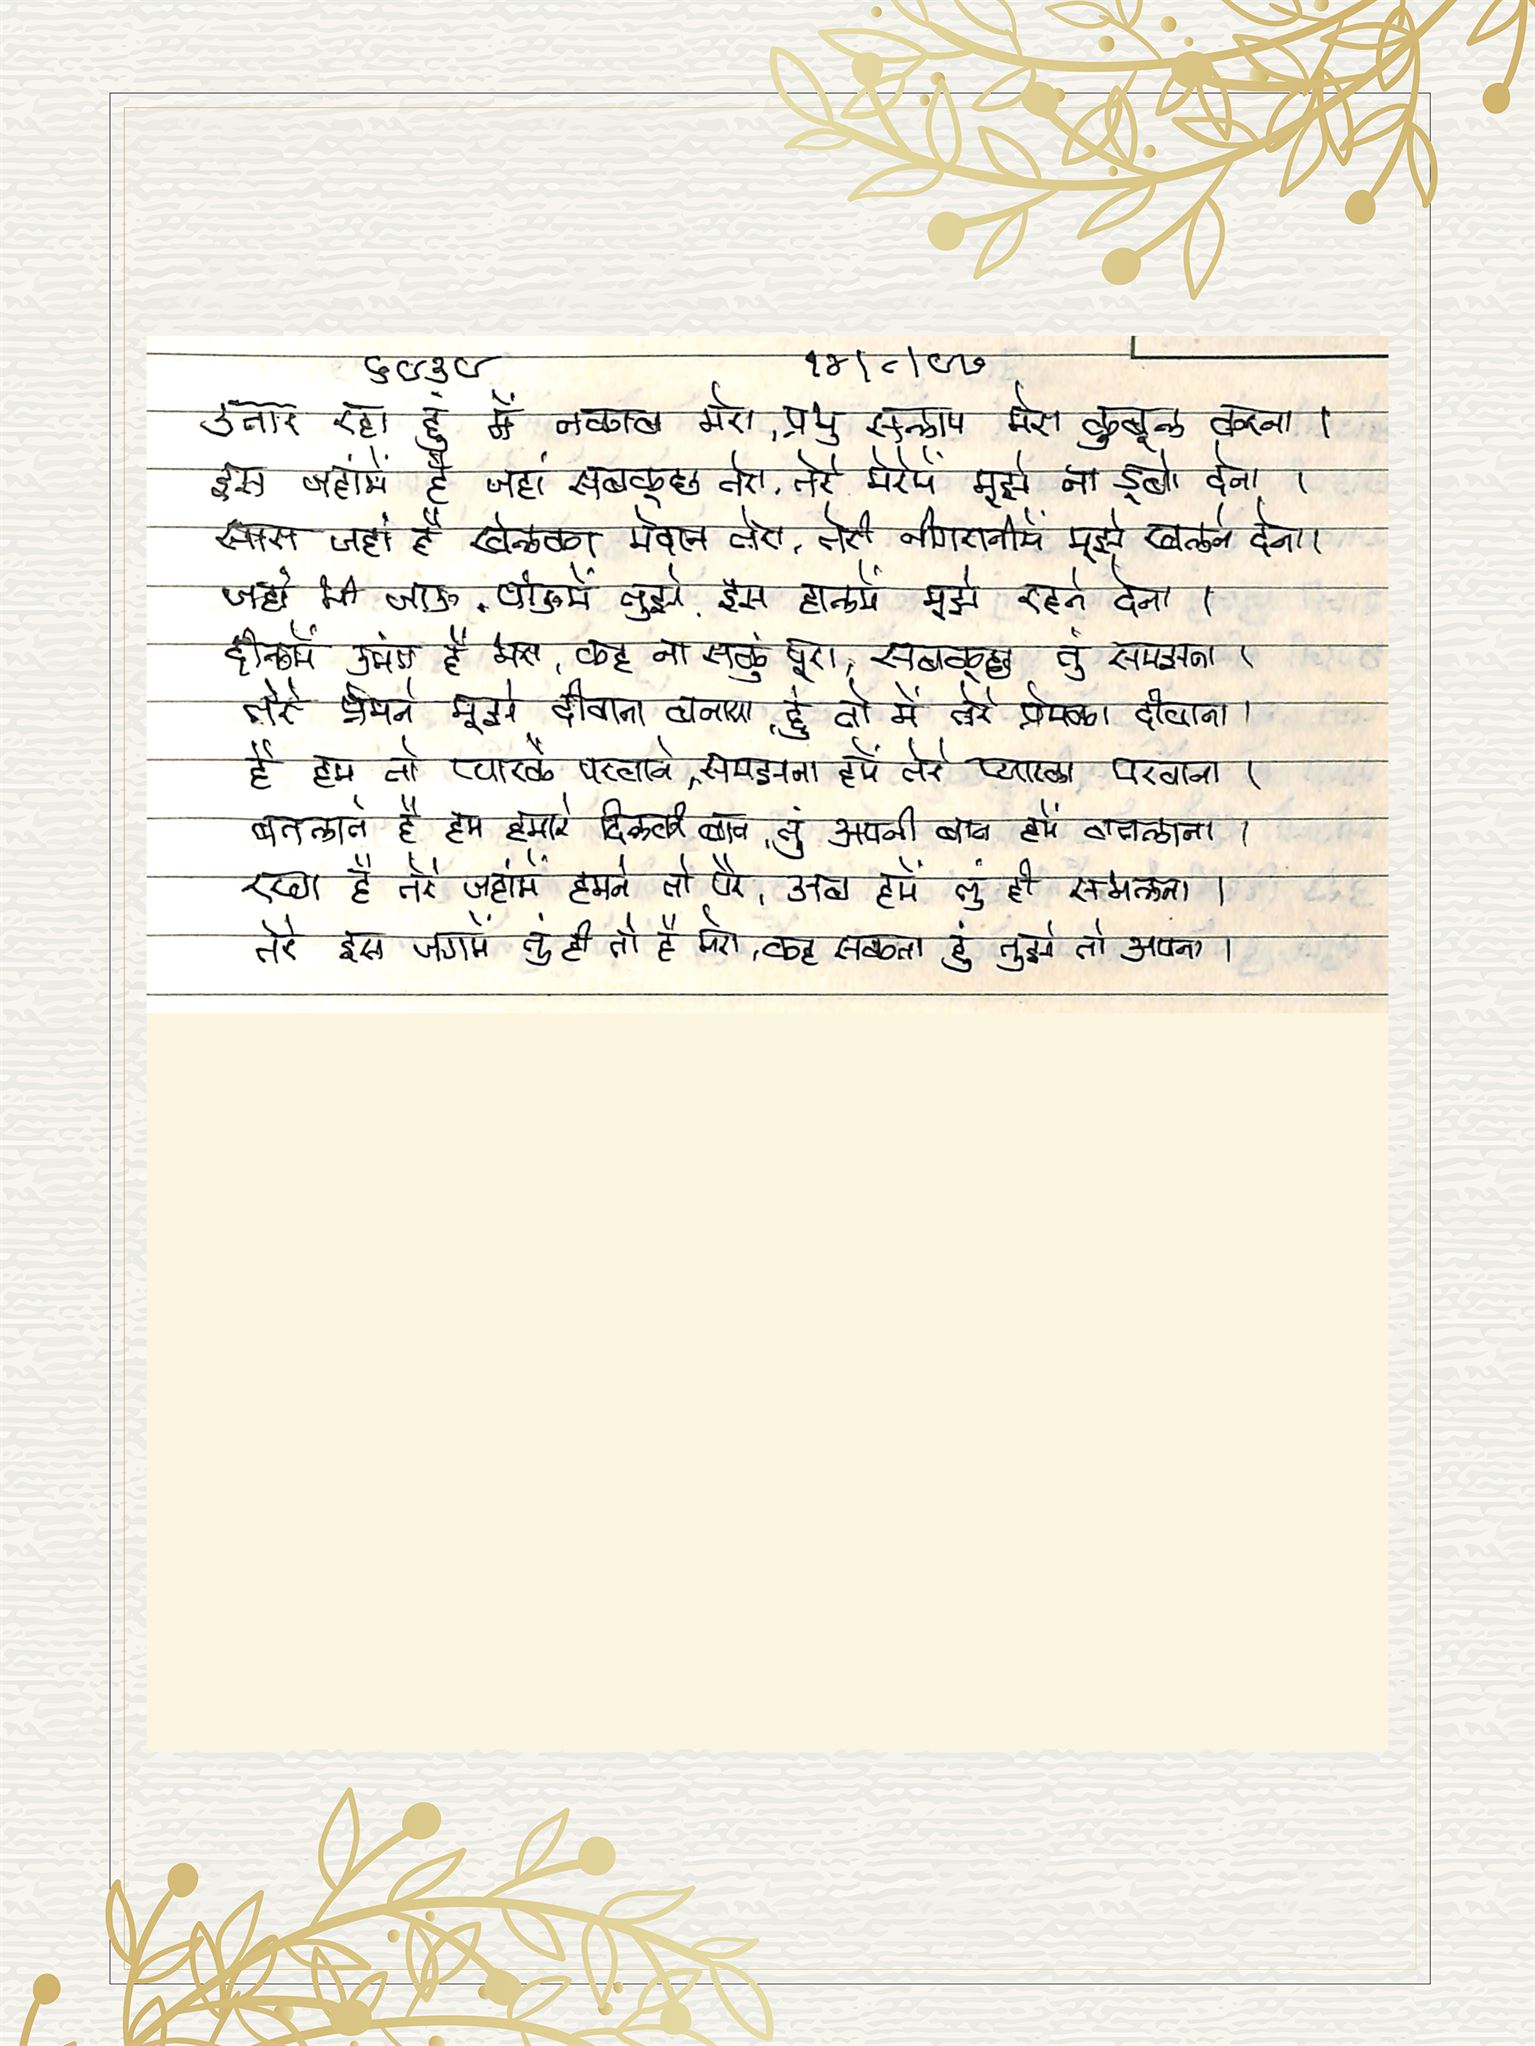 ६९३९ १४/८/९७
उतार रहा हुं में नकाब मेरा, प्रभु सलाम मेरा कुबूल करना ।
इस जहांमें है जहां सबकुछ तेरा, तेरे मेरेमें मूझे ना डूबो देना ।
सारा जहां है खेलका मेदान तेरा, तेरी नीगरानीमें मूझे खेलने देना ।
जहां भी जाऊ, पाऊमें तुझे, इस हालमें मूझे रहने देना ।
दीलमें उमंग है भरा, कह ना सकुं पूरा, सबकुछ तुं समझना ।
तेरे प्रेमने मूझे दीवाना बनाया, हुं तो में तेरे प्रेमका दीवाना ।
हैं हम तो प्यारके परवाने, समझना हमें तेरे प्यारका परवाना ।
बतलाते है हम हमारे दिलकी बात, तुं अपनी बात हमें बतलाना ।
रखा है तेरे जहांमें हमने तो पैर, अब हमें तुं ही संभालना ।
तेरे इस जगमें तुं ही तो है मेरा, कह सकता हुं तुझे तो अपना ।